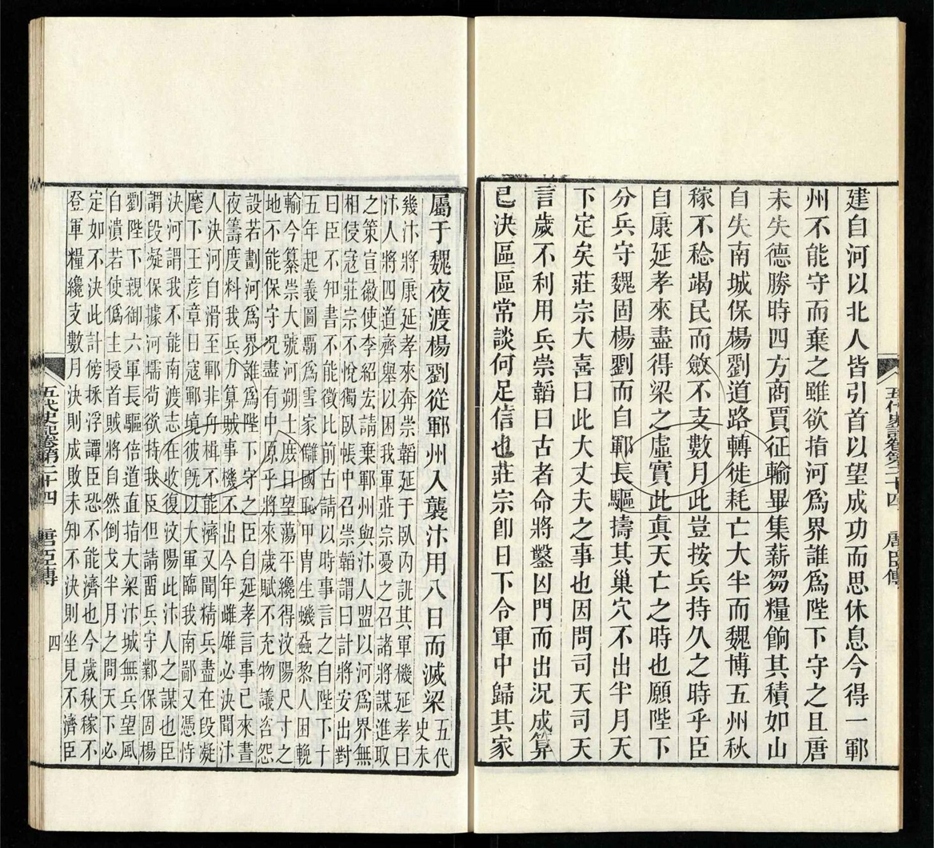 建自河以北人皆引首以望成功而思休息今得一鄆
州不能守而棄之雖欲指河爲界誰爲陛下守之且唐
未失德勝時四方商賈征輸畢集薪芻糧餉其積如山
自失南城保楊劉道路轉徙耗亡大半而魏博五州秋
稼不稔竭民而斂不支數月此豈按兵持久之時乎臣
自康延孝來盡得梁之虛實此真天亡之時也願陛下
分兵守魏固楊劉而自鄆長驅擣其巢穴不出半月天
下定矣莊宗大喜曰此大丈夫之事也因問司天司天
言歲不利用兵崇韜曰古者命將鑿凶門而出況成算
已決區區常談何足信也莊宗卽日下令軍中歸其家
五代史記卷第二十四 唐臣傳
屬于魏夜渡楊劉從鄆州入襲汴用八日而滅梁
五代
史未
幾汴將康延孝來奔崇韜延于臥內訊其軍機延孝曰
汴人將四道齊舉以困我軍莊宗憂之召諸將謀進取
之策宣徽使李紹宏請棄鄆州與汴人盟以河爲界無
相侵寇莊宗不悅獨臥帳中召崇韜謂曰計將安出對
曰臣不知書不能徵比前古請以時事言之自陛下十
五年起義圖霸爲雪家讎國恥甲冑生蟣蝨黎人困輓
輸今纂崇大號河朔士庶日望蕩平纔得汶陽尺寸之
地不能保守況盡有中原乎將來歲賦不充物議咨怨
設若劃河爲界誰爲陛下守之臣自延孝言事已來晝
夜籌度料我兵力算賊事機不出今年雌雄必決聞汴
人決河自滑至鄆非舟楫不能濟又聞精兵盡在段凝
麾下王彥章日寇鄆境彼旣以大軍臨我南鄙又憑恃
決河謂我不能南渡志在收復汶陽此汴人之謀也臣
謂段凝保據河壖苟欲持我臣但請畱兵守鄴保固楊
劉陛下親御六軍長驅倍道直指大梁汴城無兵望風
自潰若使僞主授首賊將自然倒戈半月之間天下必
定如不決此計傍採浮譚臣恐不能濟也今歲秋稼不
登軍糧纔支數月決則成敗未知不決則坐見不濟臣
五代史記卷第二十四 唐臣傳 四